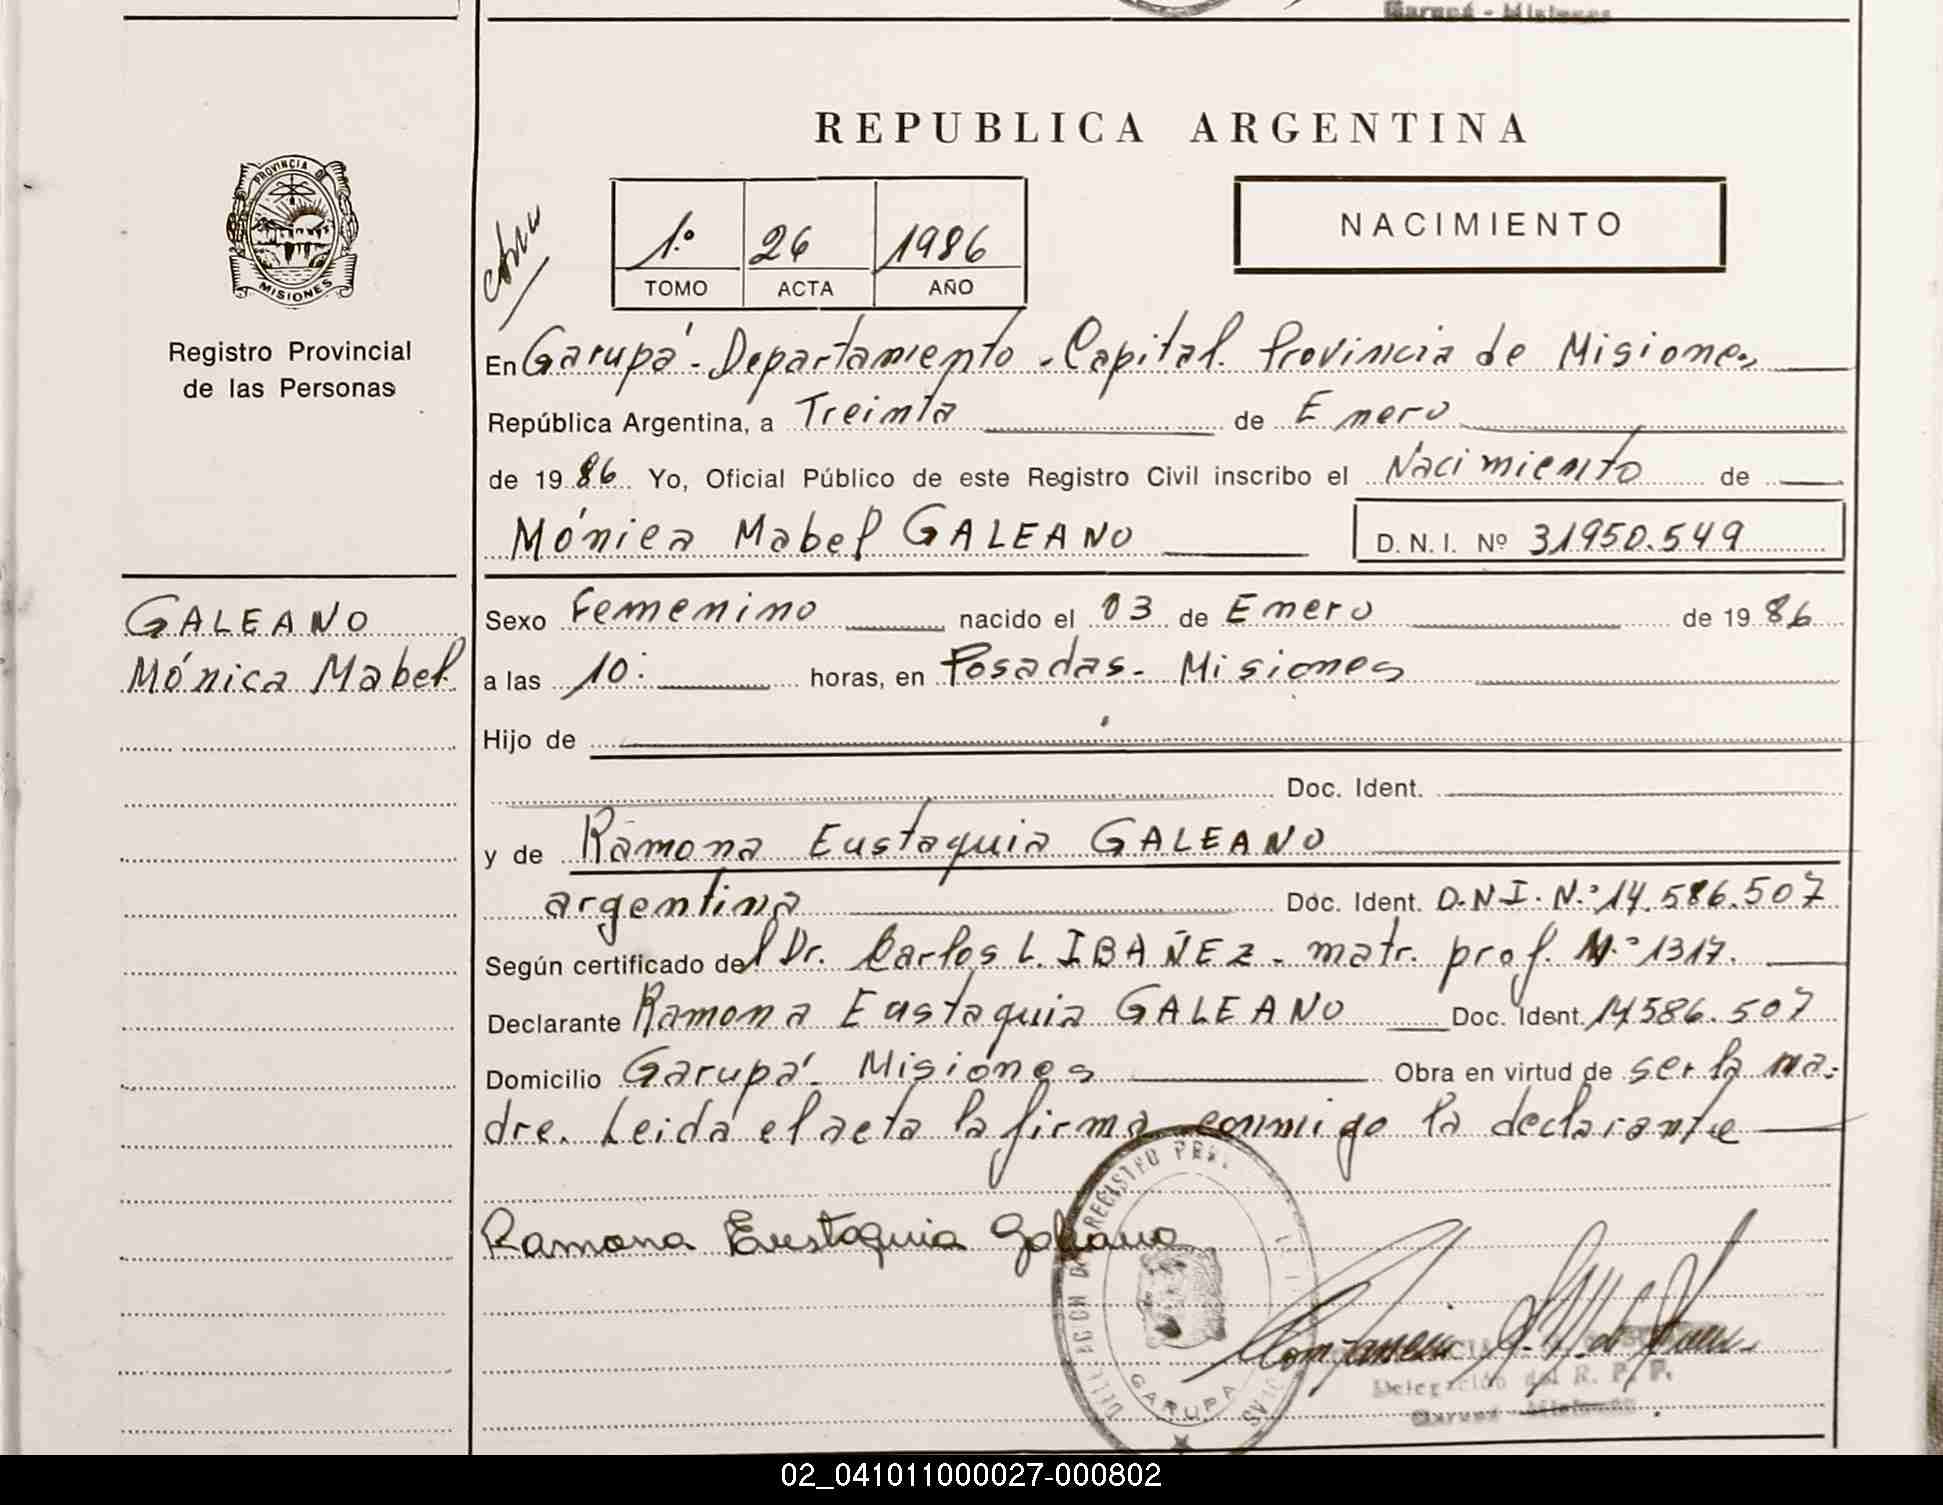 Garupá - Misiones
REPUBLICA ARGENTINA
PROVINCIA DE
MISIONES
Registro Provincial
de las Personas
1º 26 1986
TOMO ACTA AÑO
NACIMIENTO
En Garupá - Departamento - Capital. Provincia de Misiones
República Argentina, a Treinta de Enero
de 1986 Yo, Oficial Público de este Registro Civil inscribo el Nacimiento de
Mónica Mabel GALEANO D.N.I. Nº 31950.549
GALEANO
Mónica Mabel
Sexo Femenino nacido el 03 de Enero de 1986
a las 10: horas, en Posadas - Misiones
Hijo de
Doc. Ident.
y de Ramona Eustaquia GALEANO
argentina Doc. Ident. D.N.I. N.º 14.586.507
Según certificado del Dr. Carlos L. IBAÑEZ - matr. prof. N.º 1317.
Declarante Ramona Eustaquia GALEANO Doc. Ident. 14586.507
Domicilio Garupá - Misiones Obra en virtud de ser la ma-
dre. Leida el acta la firma conmigo la declarante
Ramona Eustaquia Galeano
GARUPA
Delegación del R. P. P.
Garupá - Misiones
02_041011000027-000802